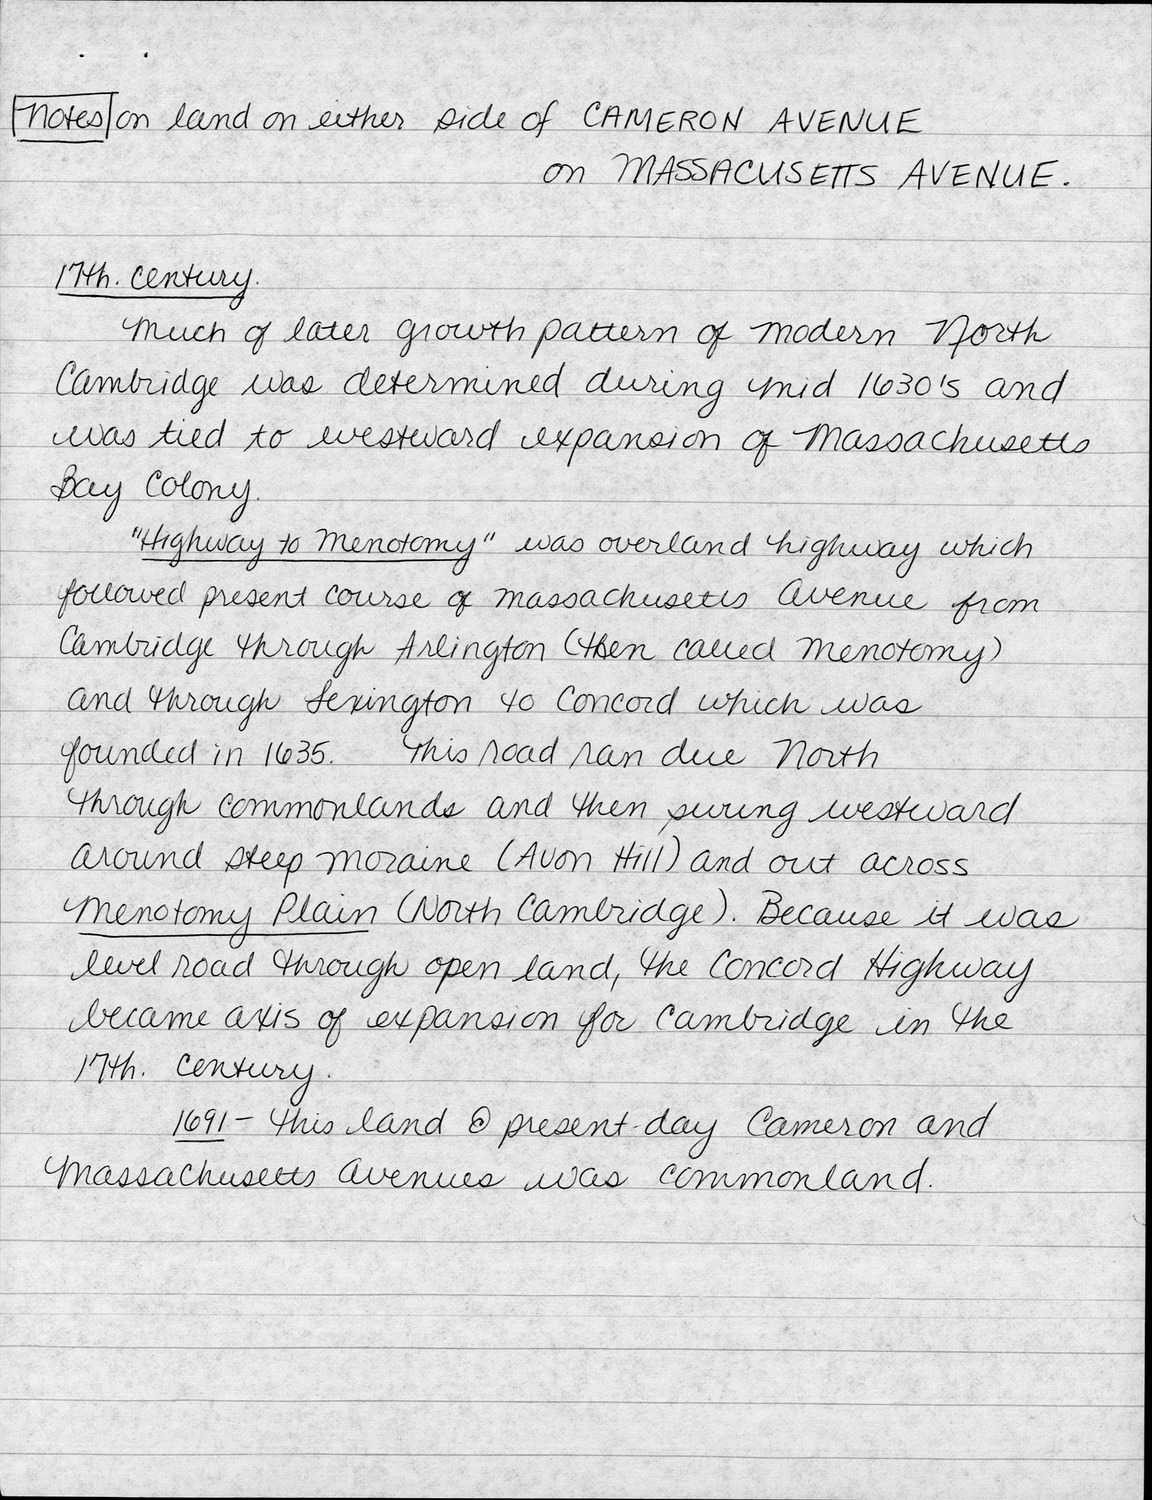 Notes on land on either side of CAMERON AVENUE
on MASSACUSETTS AVENUE.
17th. Century.
Much of later growth pattern of modern North
Cambridge was determined during mid 1630's and
was tied to westward expansion of Massachusetts
Bay Colony.
"Highway to Menotomy" was overland highway which
followed present course of Massachusetts Avenue from
Cambridge through Arlington (then called Menotomy)
and through Lexington to Concord which was
founded in 1635. This road ran due North
through commonlands and then swung westward
around steep moraine (Avon Hill) and out across
Menotomy Plain (North Cambridge). Because it was
level road through open land, the Concord Highway
became axis of expansion for Cambridge in the
17th. Century.
1691 - This land @ present-day Cameron and
Massachusetts Avenues was commonland.